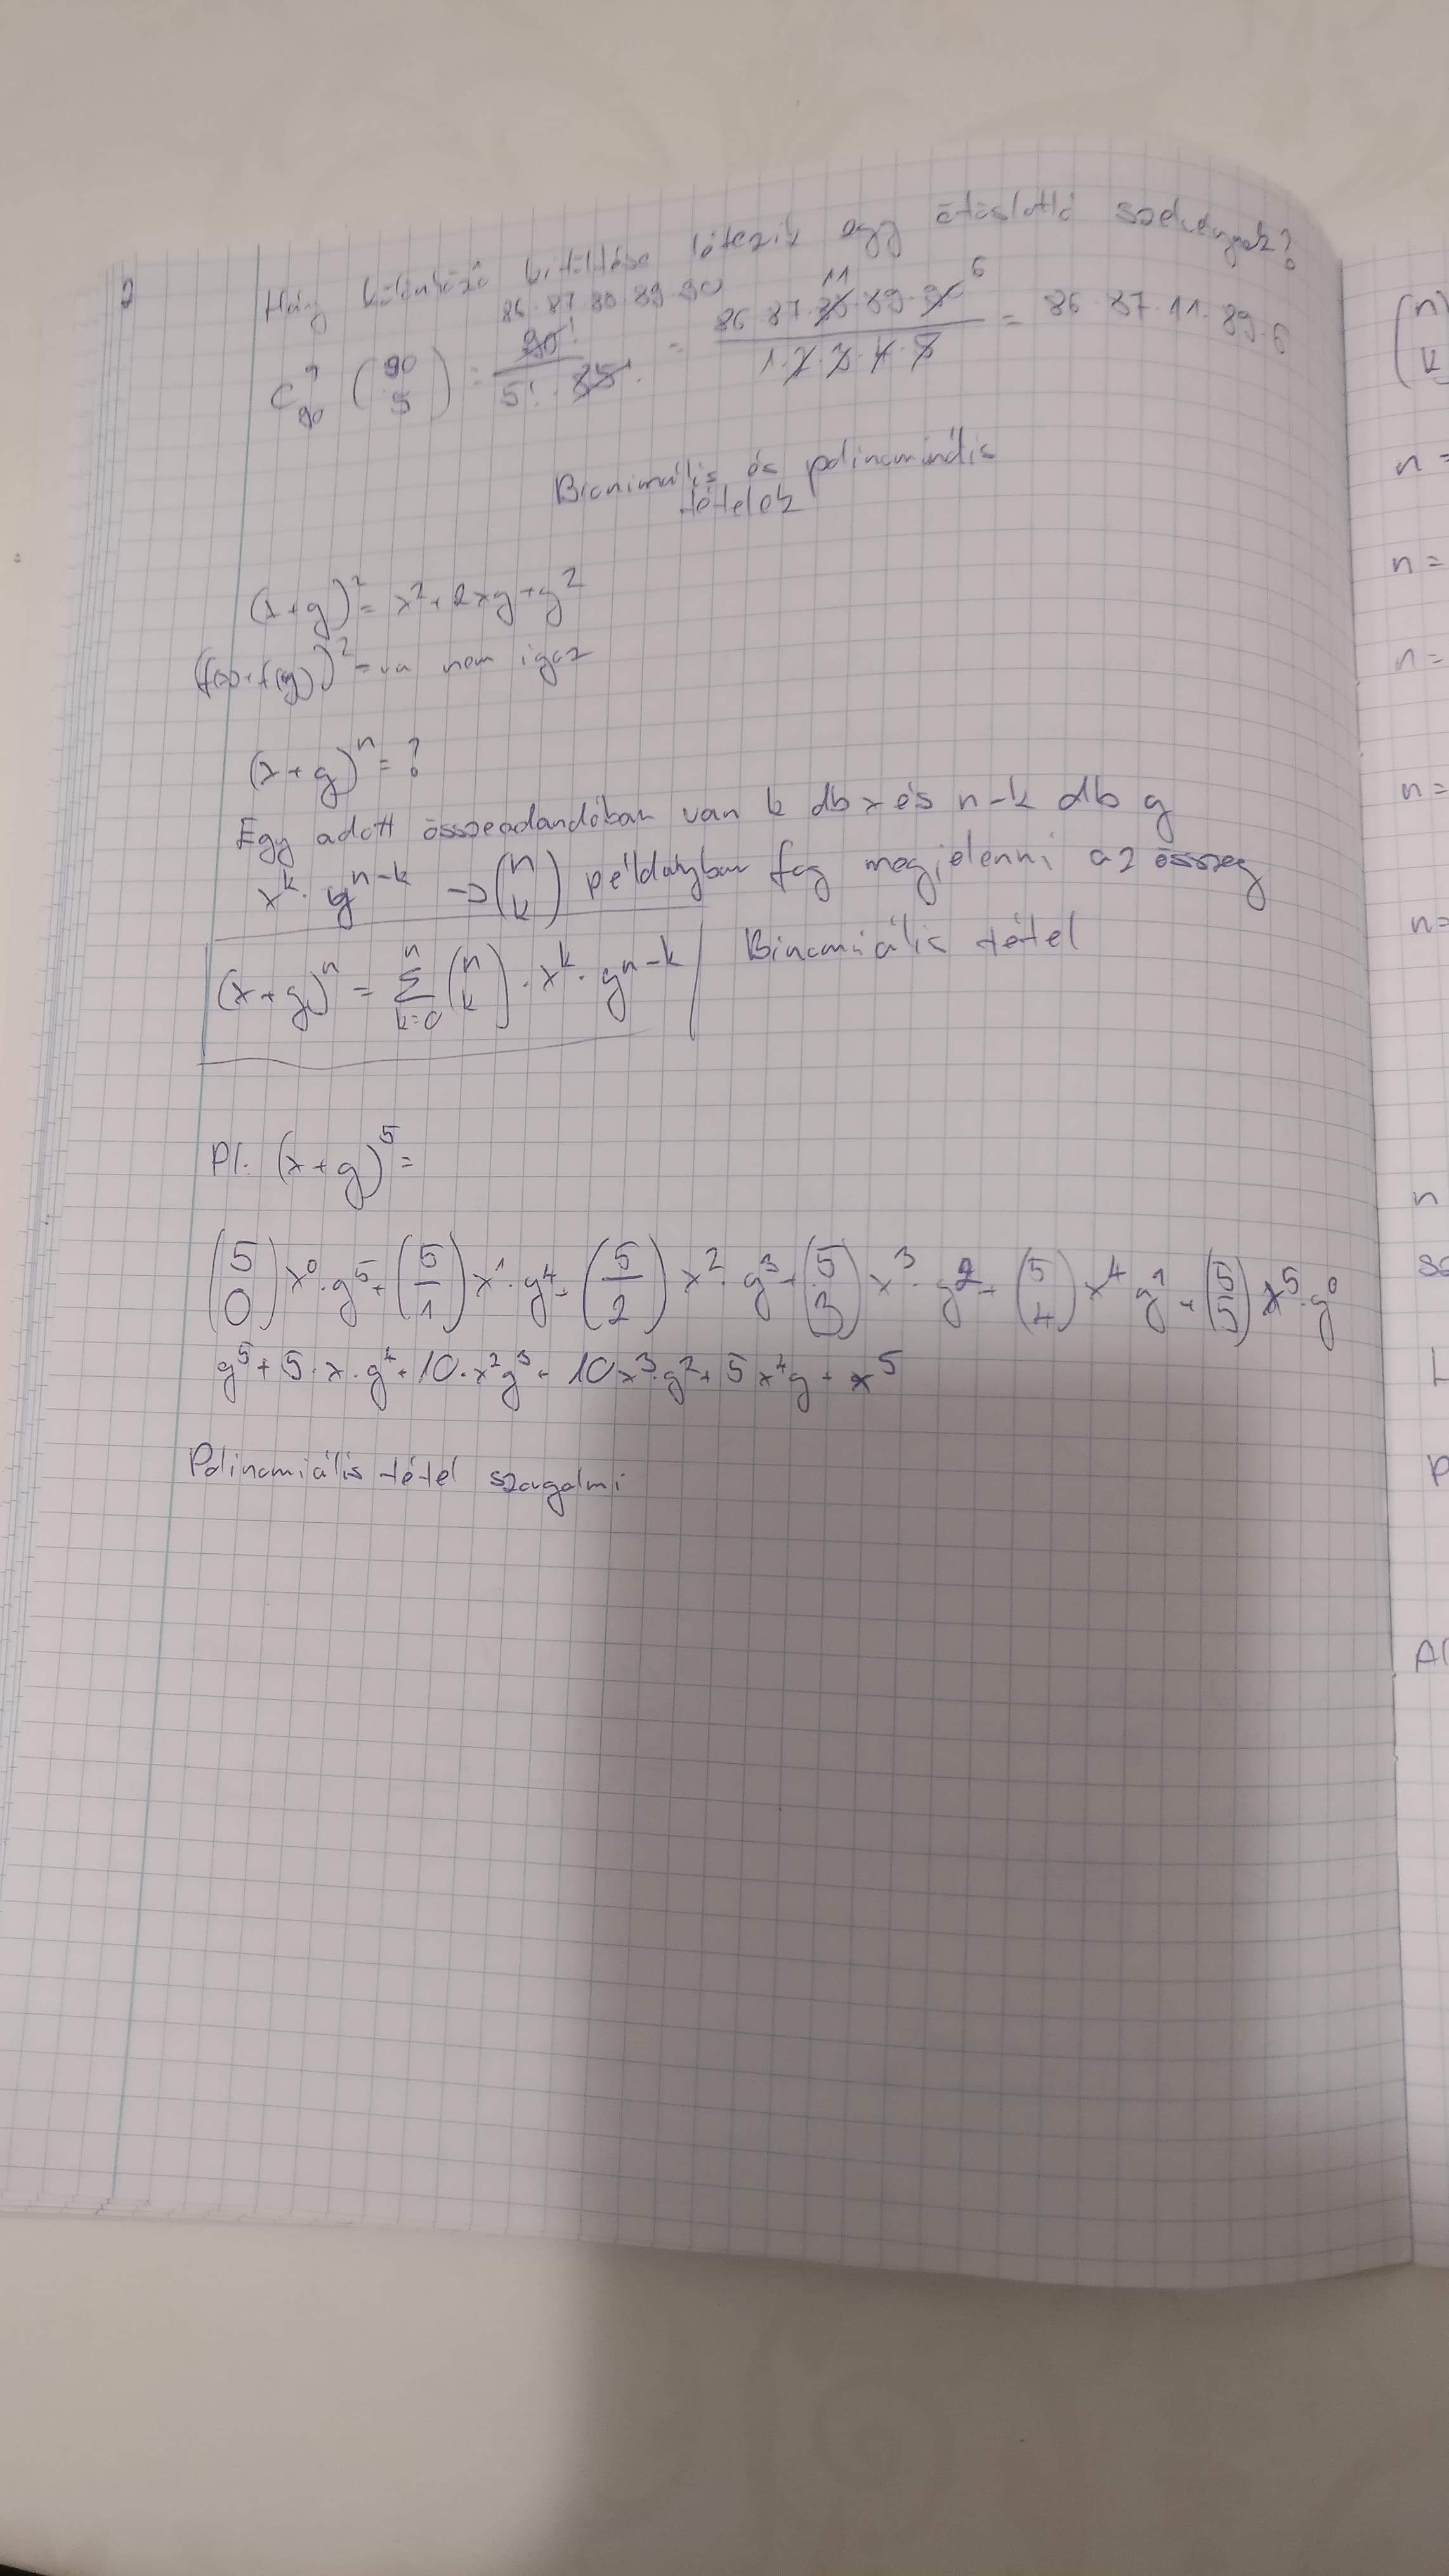 Hány különböző kitöltése létezik egy ötöslottó szelvénynek?
86·87·88·89·90 11 6
C₉₀ (90 5) = 90! / 5!·85! = 86·87·88·89·90 / 1·2·3·4·5 = 86·87·11·89·6
Bionimális és polinominális
tételek
(x+y)² = x²+2xy+y²
(f(x)+f(y))² = nem igaz
(x+y)ⁿ = ?
Egy adott összeadandóban van k db x és n-k db y
xᵏ·yⁿ⁻ᵏ -> (n k) példányban fog megjelenni az összeg
(x+y)ⁿ = Σ k=0 n (n k)·xᵏ·yⁿ⁻ᵏ Binomiális tétel
Pl. (x+y)⁵ =
(5 0)x⁰·y⁵+(5 1)x¹·y⁴+(5 2)x²·y³+(5 3)x³·y²+(5 4)x⁴y¹+(5 5)x⁵·y⁰
y⁵+5·x·y⁴+10·x²y³+10x³·y²+5x⁴y+x⁵
Polinomiális tétel szorgalmi
(n
k
n =
n =
n =
n =
n =
n
L
P